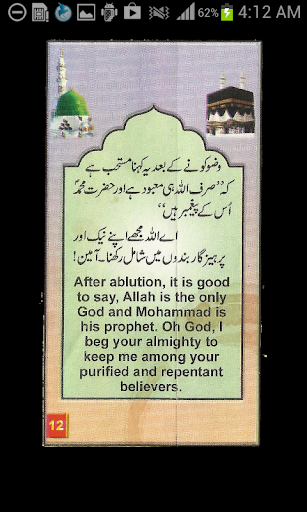 62% 4:12 AM
وضو کرنے کے بعد یہ کہنا مستحب ہے
کہ ’’صرف اللہ ہی معبود ہے اور حضرت محمدؐ
اُس کے پیغمبر ہیں‘‘
اے اللہ مجھے اپنے نیک اور
پرہیز گار بندوں میں شامل رکھنا۔ آمین!
After ablution, it is good
to say, Allah is the only
God and Mohammad is
his prophet. Oh God, I
beg your almighty to
keep me among your
purified and repentant
believers.
12